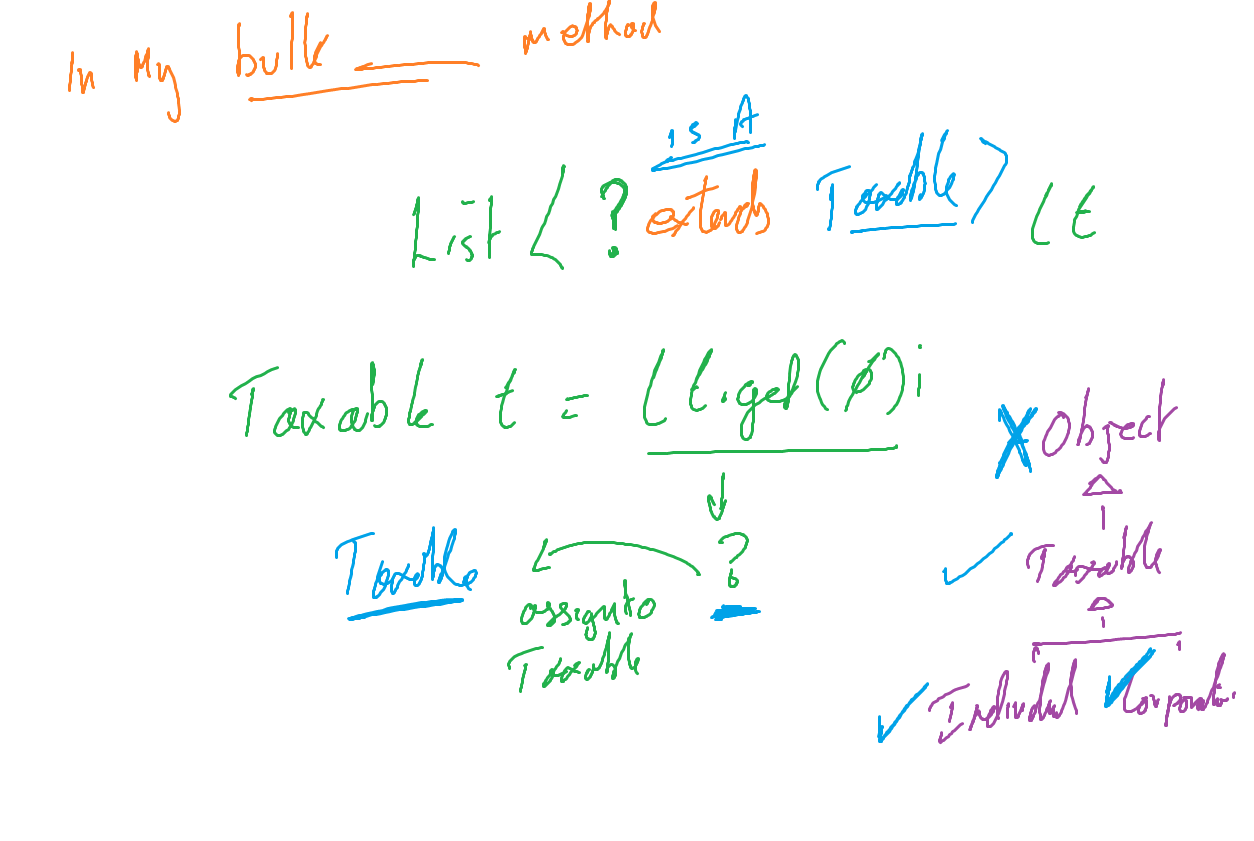 In My bulk method
is A
List < ? extends Taxable > lt
Taxable t = lt.get(0);
X Object
Taxable
Taxable ?
assign to
Taxable
Individual Corporation